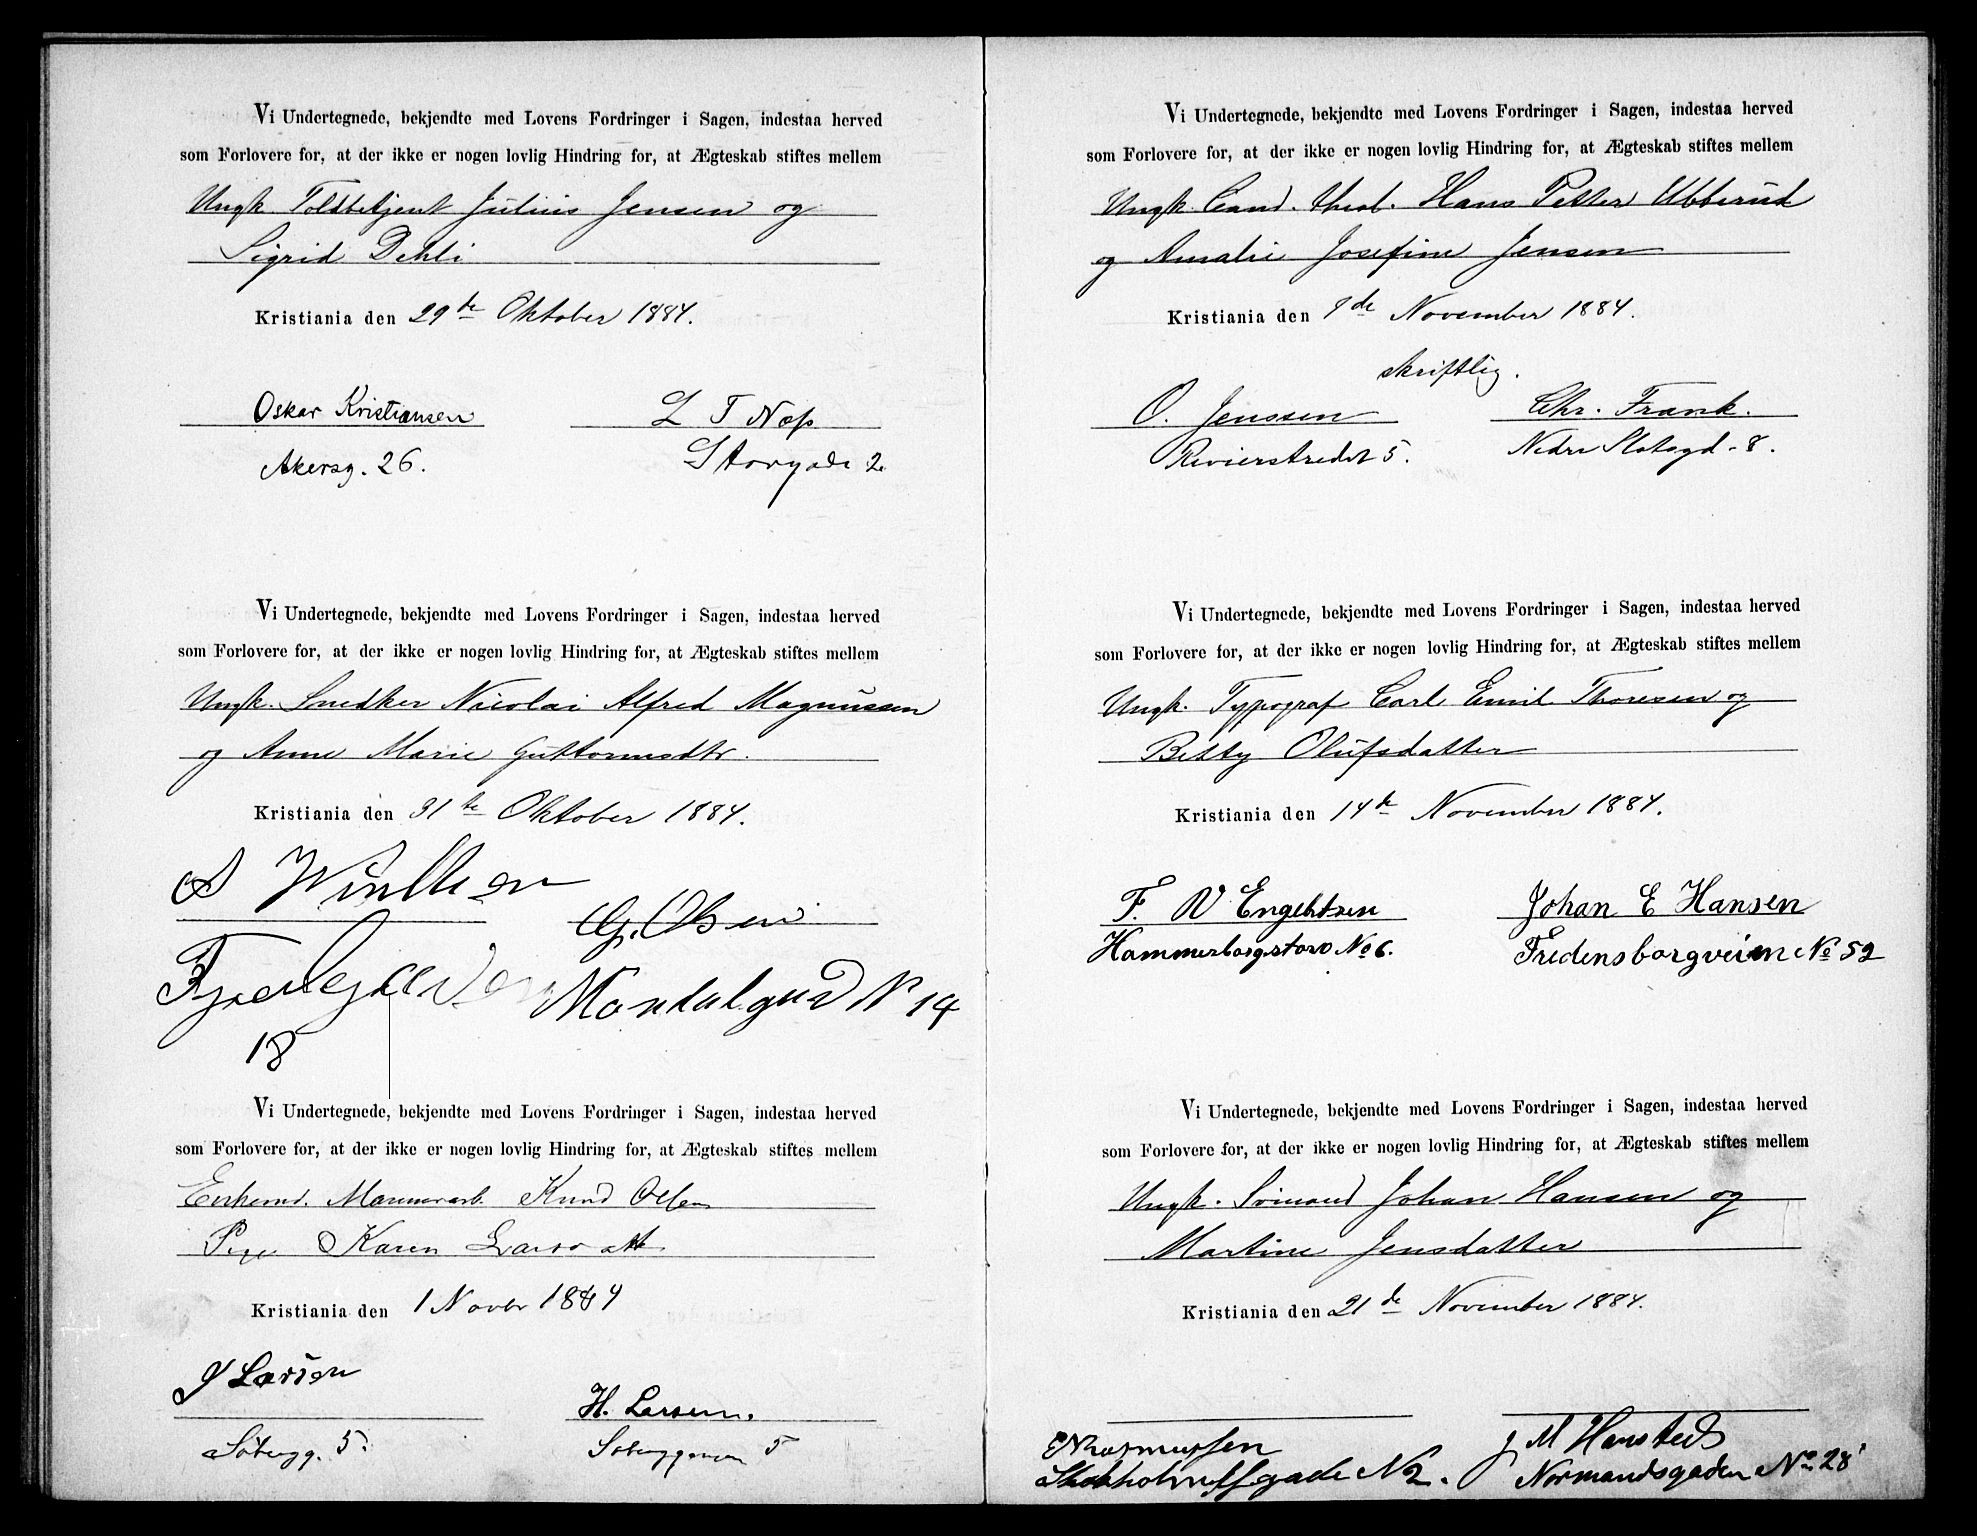 Vi Undertegnede, bekjendte med Lovens Fordringer i Sagen, indestaa herved
som Forlovere for, at der ikke er nogen lovlig Hindring for, at Ægteskab stiftes mellem
Ungk. Toldbetjent Julius Jensen og
Sigrid Dehli
Kristiania den 29de Oktober 1884.
Oskar Kristiansen
Akersg. 26.
L T Næss
Storgade 2
Vi Undertegnede, bekjendte med Lovens Fordringer i Sagen, indestaa herved
som Forlovere for, at der ikke er nogen lovlig Hindring for, at Ægteskab stiftes mellem
Ungk. Snedker Nicolai Alfred Magnussen
og Anne Marie Guttormsdtr.
Kristiania den 31te Oktober 1884.
A Winther
18
G. Olsen
Mandalgad N 14
Vi Undertegnede, bekjendte med Lovens Fordringer i Sagen, indestaa herved
som Forlovere for, at der ikke er nogen lovlig Hindring for, at Ægteskab stiftes mellem
Enkemd. Marmorarb. Knud Olsen
Pige Karen Larsdatt
Kristiania den 1 Novbr 1884
J Larsen
5
H. Larsen.
5
Vi Undertegnede, bekjendte med Lovens Fordringer i Sagen, indestaa herved
som Forlovere for, at der ikke er nogen lovlig Hindring for, at Ægteskab stiftes mellem
Ungk. Cand. theol. Hans Petter Ubberud
og Amalie Josefine Jensen
Kristiania den 9de November 1884.
skriftlig.
O. Jenssen
Revierstredet 5.
Chr. Frank.
Nedre Slotsgd. 8.
Vi Undertegnede, bekjendte med Lovens Fordringer i Sagen, indestaa herved
som Forlovere for, at der ikke er nogen lovlig Hindring for, at Ægteskab stiftes mellem
Ungk. Typograf Carl Emil Thoresen og
Betty Olufsdatter
Kristiania den 14de November 1884.
F. W Engebtsen
Hammerborgstorv No 6.
Johan E Hansen
Fredensborgveien No 52
Vi Undertegnede, bekjendte med Lovens Fordringer i Sagen, indestaa herved
som Forlovere for, at der ikke er nogen lovlig Hindring for, at Ægteskab stiftes mellem
Ungk. Sømand Johan Hansen og
Martine Jensdatter
Kristiania den 21de November 1884.
Rasmussen
Stokholmsgade N 2.
J M Hansteds
Normandsgaden No 28